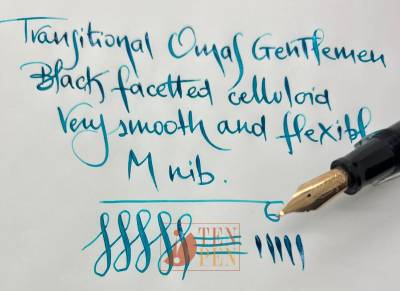 Transitional Omas Gentlemen
Black facetted celluloid
Very smooth and flexibl
M nib.
TEN
PEN